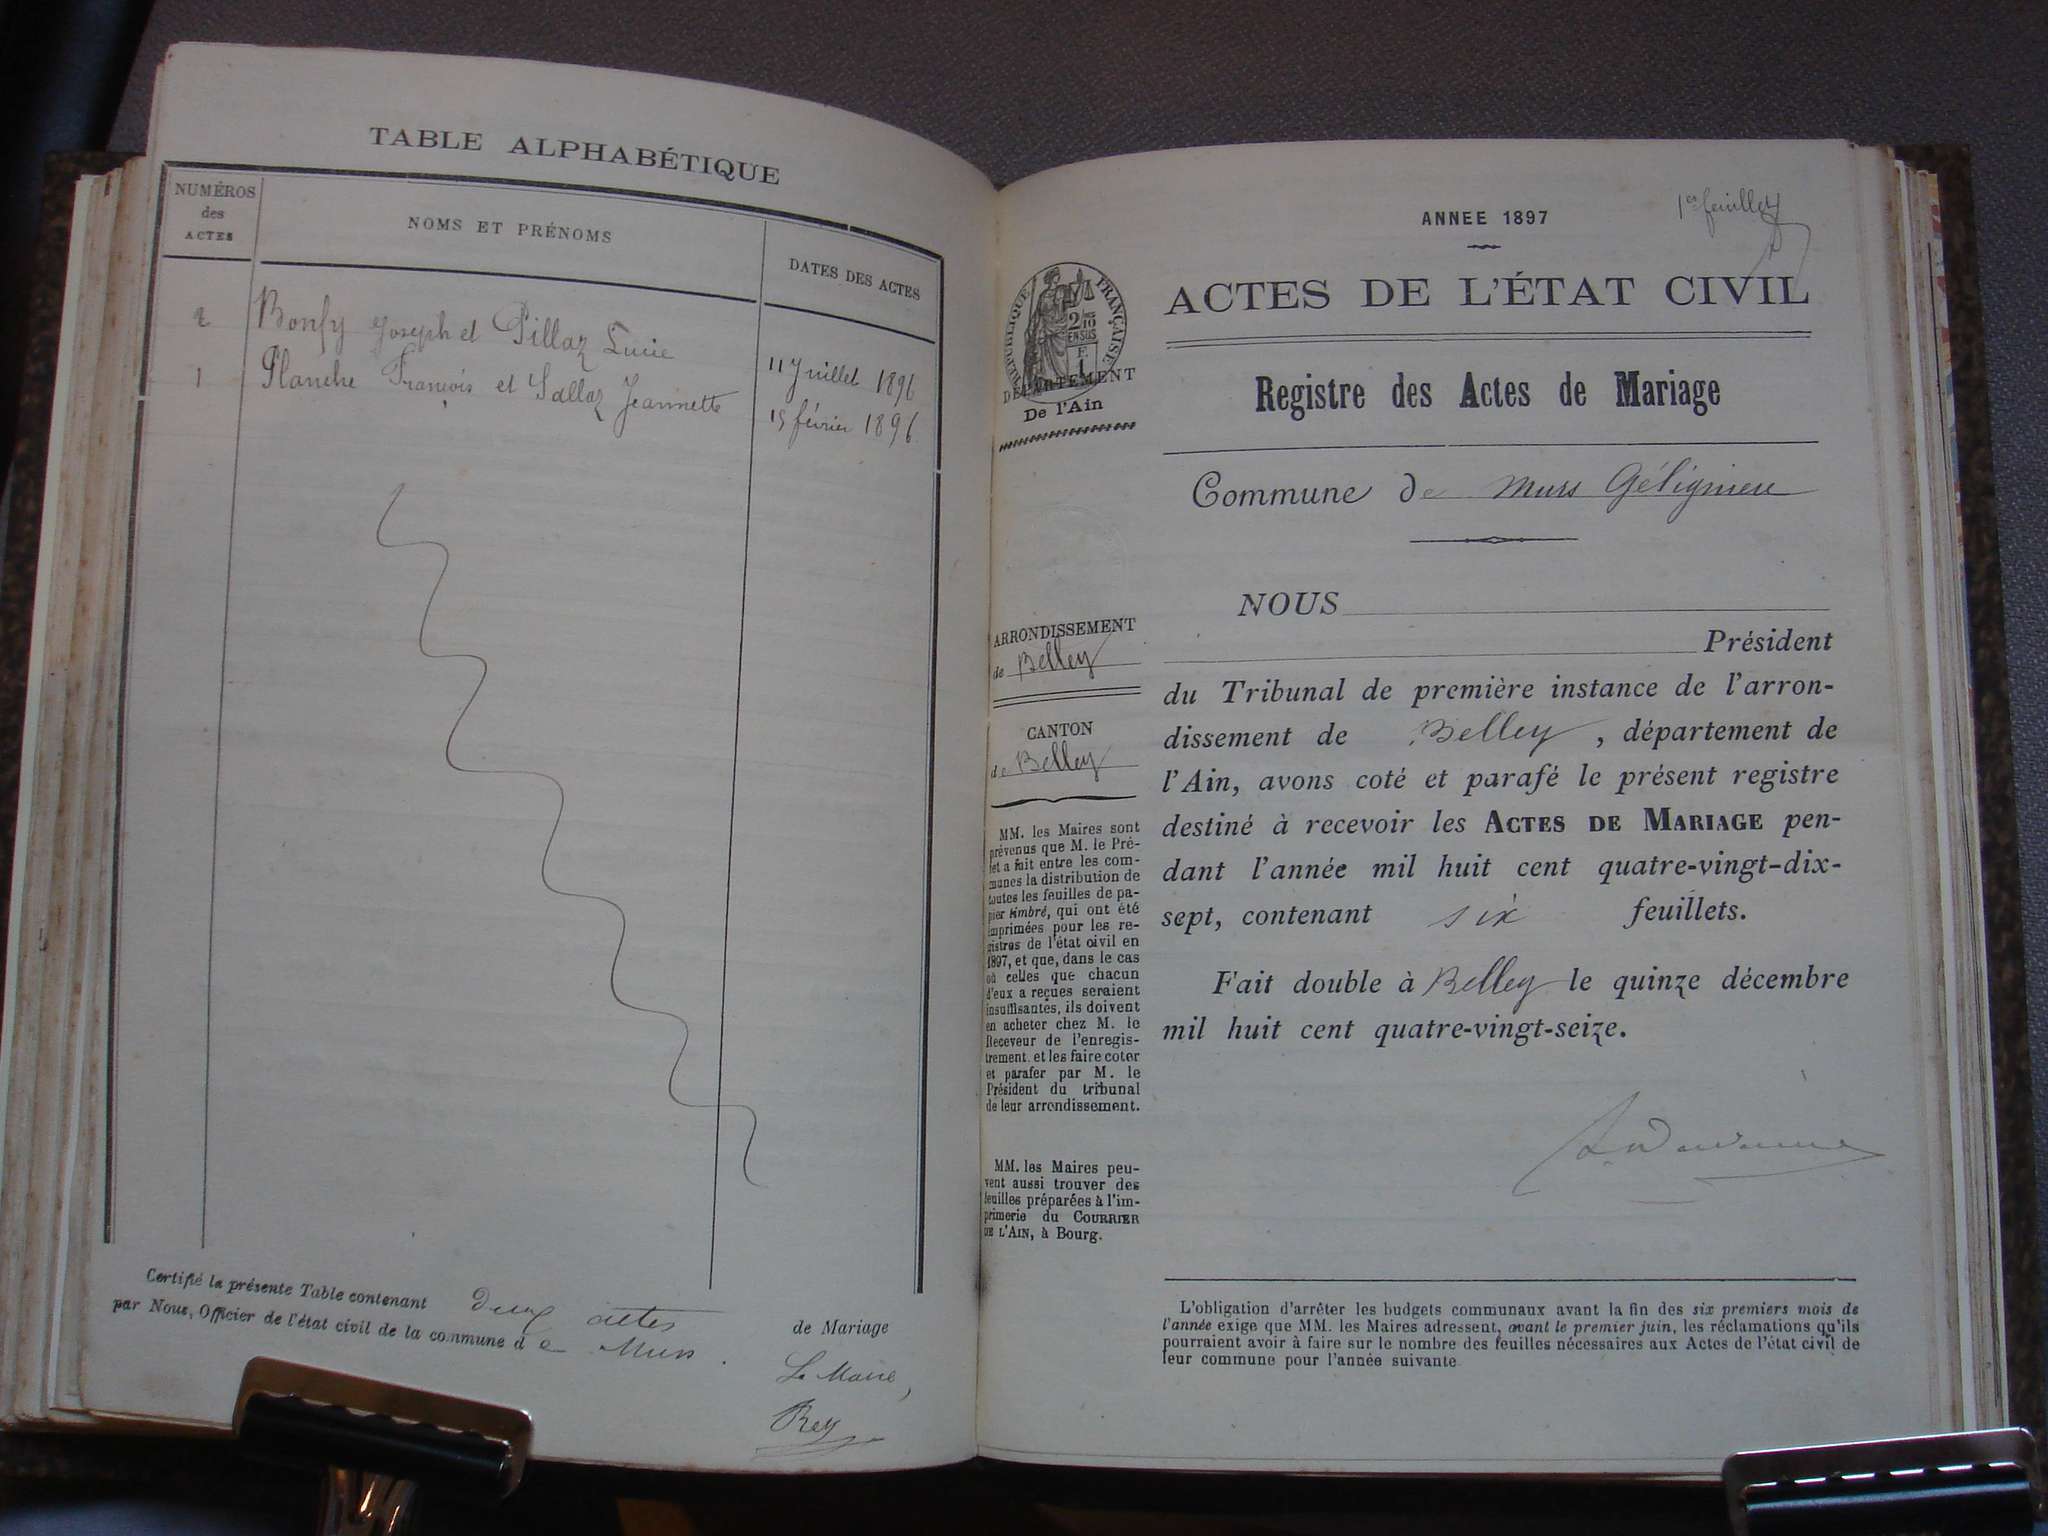 TABLE ALPHABÉTIQUE
NUMÉROS
des
ACTES
NOMS ET PRÉNOMS
DATES DES ACTES
2 Bonfy Joseph et Pillaz Lucie 11 Juillet 1896
1 Planche François et Sallaz Jeannette 15 février 1896
Certifié la présente Table contenant deux actes de Mariage
par Nous, Officier de l'état civil de la commune de Murs.
Le Maire,
Rey
1er feuillet
ANNEE 1897
RÉPUBLIQUE FRANÇAISE
2/10
EN SUS
DÉPARTEMENT
De l'Ain
ACTES DE L'ÉTAT CIVIL
Registre des Actes de Mariage
Commune de Murs Gélignieu
ARRONDISSEMENT
de Belley
CANTON
de Belley
MM. les Maires sont
prévenus que M. le Pré-
fet a fait entre les com-
munes la distribution de
toutes les feuilles de pa-
pier timbré, qui ont été
imprimées pour les re-
gistres de l'état civil en
1897, et que, dans le cas
où celles que chacun
d'eux a reçues seraient
insuffisantes, ils doivent
en acheter chez M. le
Receveur de l'enregis-
trement. et les faire coter
et parafer par M. le
Président du tribunal
de leur arrondissement.
MM. les Maires peu-
vent aussi trouver des
feuilles préparées à l'im-
primerie du COURRIER
DE L'AIN, à Bourg.
NOUS
Président
du Tribunal de première instance de l'arron-
dissement de Belley, département de
l'Ain, avons coté et parafé le présent registre
destiné à recevoir les ACTES DE MARIAGE pen-
dant l'année mil huit cent quatre-vingt-dix-
sept, contenant six feuillets.
Fait double à Belley le quinze décembre
mil huit cent quatre-vingt-seize.
L'obligation d'arrêter les budgets communaux avant la fin des six premiers mois de
l'année exige que MM. les Maires adressent, avant le premier juin, les réclamations qu'ils
pourraient avoir à faire sur le nombre des feuilles nécessaires aux Actes de l'état civil de
leur commune pour l'année suivante